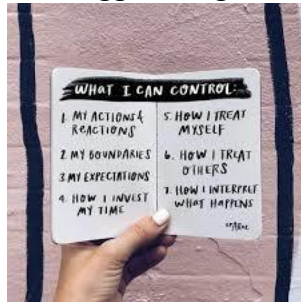 WHAT I CAN CONTROL:
1. MY ACTIONS &
REACTIONS
2. MY BOUNDARIES
3. MY EXPECTATIONS
4. HOW I INVEST
MY TIME
5. HOW I TREAT
MYSELF
6. HOW I TREAT
OTHERS
7. HOW I INTERPRET
WHAT HAPPENS